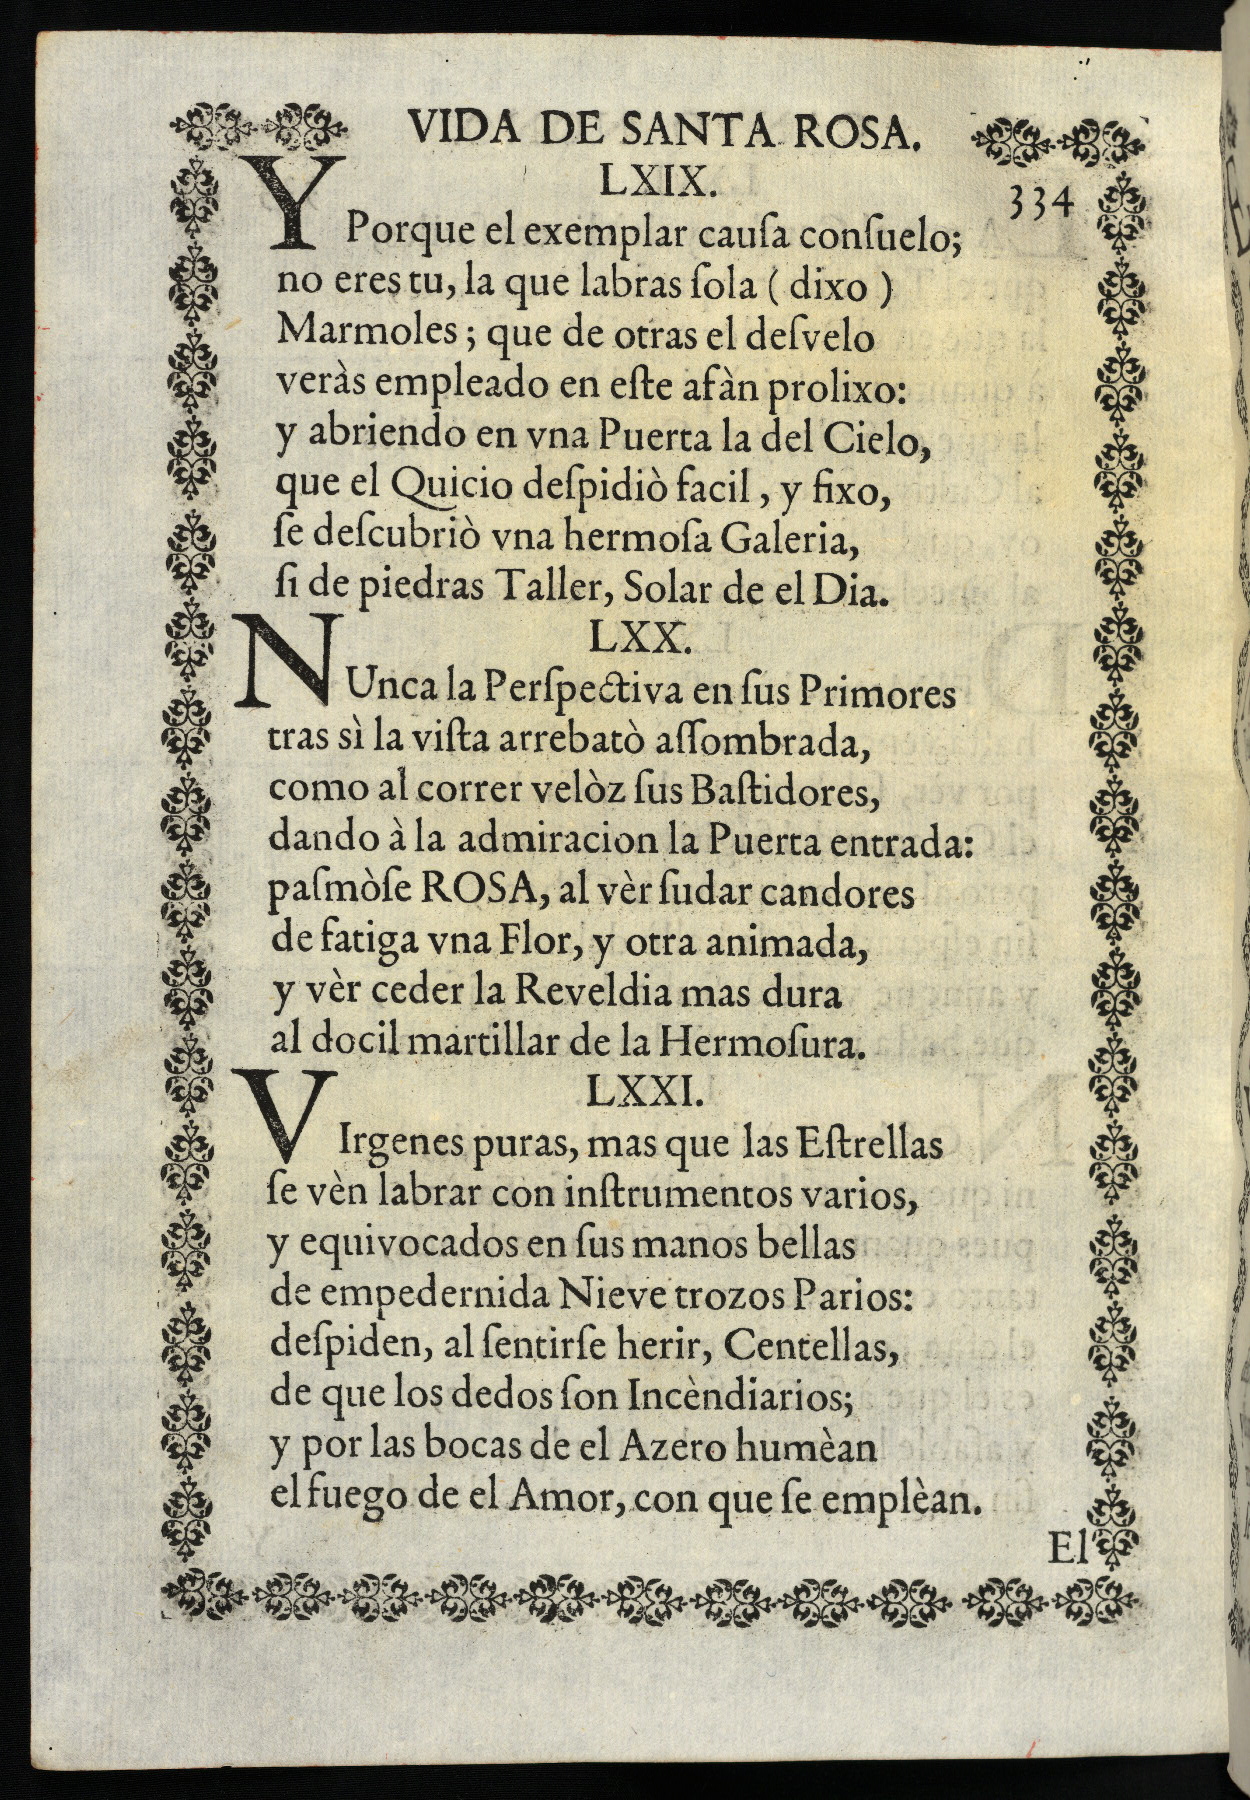 VIDA DE SANTA ROSA.
LXIX.
334
Y Porque el exemplar cauſa conſuelo;
no eres tu, la que labras ſola ( dixo )
Marmoles ; que de otras el deſvelo
veràs empleado en eſte afàn prolixo:
y abriendo en vna Puerta la del Cielo,
que el Quicio deſpidiò facil , y fixo,
ſe deſcubriò vna hermoſa Galeria,
ſi de piedras Taller, Solar de el Dia.
LXX.
NUnca la Perſpectiva en ſus Primores
tras sì la viſta arrebatò aſſombrada,
como al correr velòz ſus Baſtidores,
dando à la admiracion la Puerta entrada:
paſmòſe ROSA, al vèr ſudar candores
de fatiga vna Flor, y otra animada,
y vèr ceder la Reveldia mas dura
al docil martillar de la Hermoſura.
LXXI.
VIrgenes puras, mas que las Eſtrellas
ſe vèn labrar con inſtrumentos varios,
y equivocados en ſus manos bellas
de empedernida Nieve trozos Parios:
deſpiden, al ſentirſe herir, Centellas,
de que los dedos ſon Incèndiarios;
y por las bocas de el Azero humèan
el fuego de el Amor, con que ſe emplèan.
El